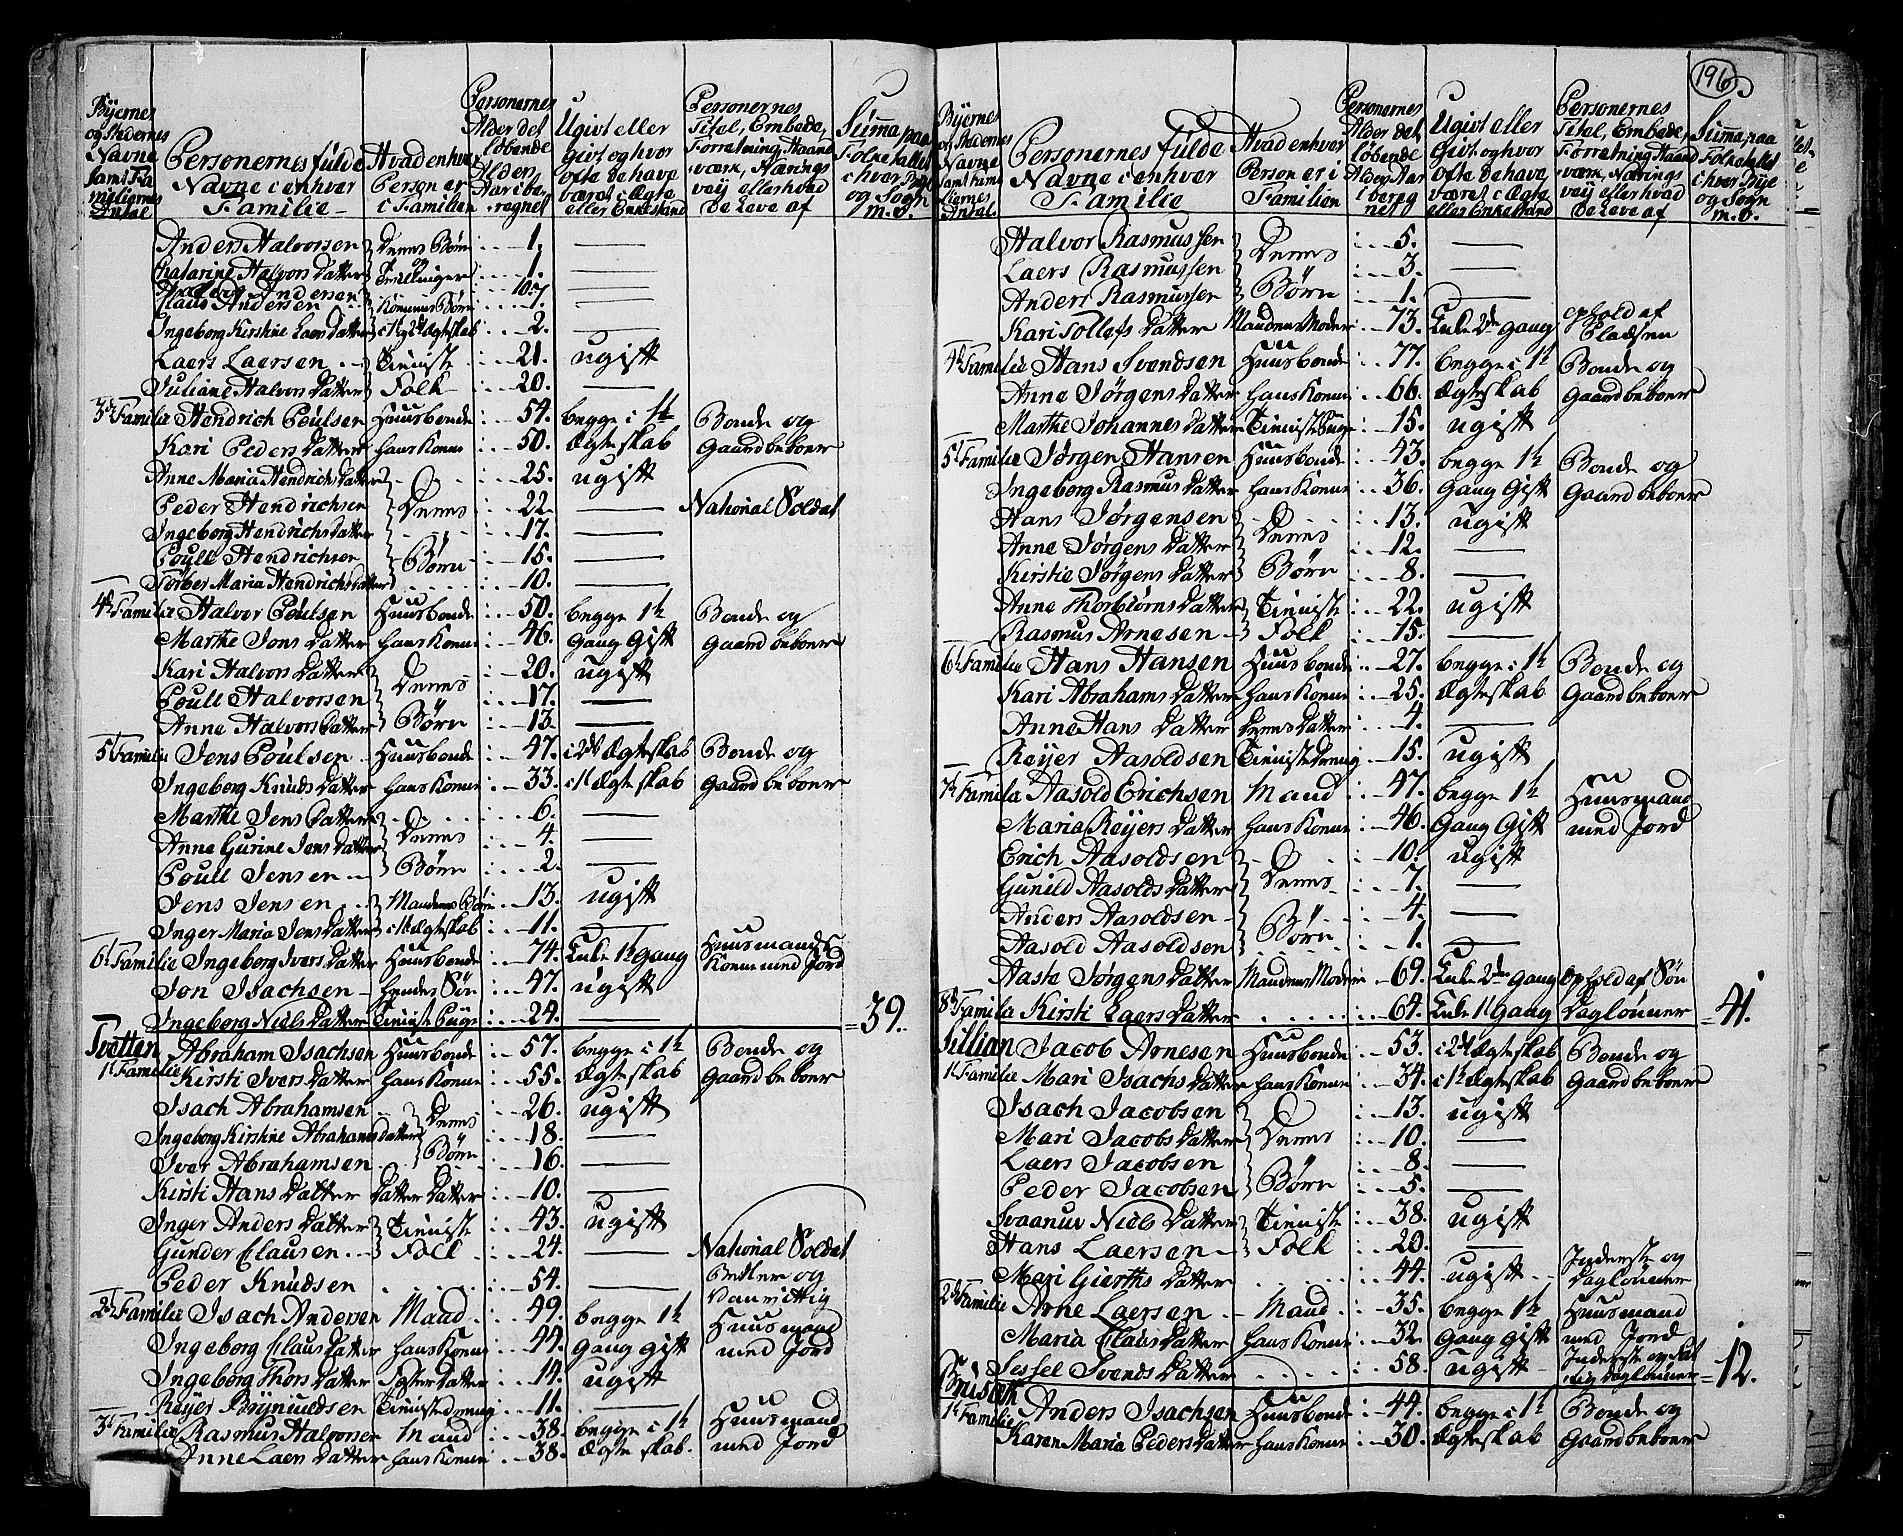 Byernes og Stedernes Navne samt Familiernes Antal | Personernes fulde Navne i enhver Familie | Hvad enhver Person er i Familien | Personernes Alder det løbende Alders Aar iberegnet | Ugivt eller Givt og hvor ofte de have været i Ægte eller Enkestand | Personernes Titel, Embede, Forretning, Haandværk, Nærings vey eller hvad de Leve af | Summa paa Folketallet i hver Bye og Sogn m.v.
Anders Halvorsen } Deres Børn 1.
Chatarine Halvors Datter } og Trillinger 1. ——
Andersen 10. ——
Claus Andersen } Konens Børn 7. ——
Ingeborg Kirstine Laers Datter i 1t og 2det Ægteskab 2. ——
Laers Laersen } Tieniste 21. ugift
Juliane Halvors Datter } Folk 20. ——
3de Familie Hendrich Poulsen Huusbonde 54. begge i 1te Bonde og
Kari Peders Datter hans Kone 50. Ægteskab Gaardbeboer
Anne Maria Hendrichs Datter } 25. ugift
Peder Hendrichsen } Deres 22. —— National Soldat
Ingeborg Hendrichs Datter } 17. ——
Poull Hendrichsen } Børn 15. ——
Torber Maria Hendrichs Datter 10. ——
4de Familie Halvor Poulsen Huusbonde 50. begge 1te Bonde og
Marthe Jons Datter hans Kone 46. Gang Gift Gaardbeboer
Kari Halvors Datter } 20. ugift
Poull Halvorsen } Deres 17. ——
Anne Halvors Datter } Børn 13. ——
5te Familie Jens Poulsen Huusbonde 47. i 2det Ægteskab Bonde og
Ingeborg Knuds Datter hans Kone 33. i 1te Ægteskab Gaardbeboer
Marthe Jens Datter } 6. ——
Anne Gurine Jens Datter } Deres 4. ——
Poull Jensen } Børn 2. ——
Jens Jensen } Mandens Børn 13. ugift
Inger Maria Jens Datter } i 1te Ægteskab 11. ——
6te Familie Ingeborg Ivers Datter Huusbonde 74. Enke 1te Gang Huusmands
Jon Isachsen Hendes Søn 47. ugift Kone med Jord
Ingeborg Niels Datter Tieniste Pige 24. —— = 39.
Tvetten Abraham Isachsen Huusbonde 57. begge i 1te Bonde og
1te Familie Kirsti Ivers Datter hans Kone 55. Ægteskab Gaardbeboer
Isach Abrahamsen } 26. ugift
Ingeborg Kirstine Abrahams Datter } Deres 18. ——
Iver Abrahamsen } Børn 16. ——
Kirsti Hans Datter Datter Datter 10. ——
Inger Anders Datter } Tieniste 43. ugift
Gunder Clausen } Folk 24. —— National Soldat
Peder Knudsen 54. —— Betler og Vanvittig
2de Familie Isach Andersen Mand 49. begge 1te Huusmand
Ingeborg Claus Datter hans Kone 44. Gang Gift med Jord
Ingeborg Thors Datter Datter 14. ugift
Reyer Brynuldsen Tienistedreng 11. ——
3de Familie Rasmus Halvorsen Mand 38. begge i 1te Huusmand
Anne Laers Datter hans Kone 38. Ægteskab. med Jord
196
Byernes og Stedernes Navne samt Familiernes Antal | Personernes fulde Navne i enhver Familie | Hvad enhver Person er i Familien | Personernes Alder det løbende Alders Aar iberegnet | Ugivt eller Givt og hvor ofte de have været i Ægte eller Enkestand | Personernes Titel, Embede, Forretning, Haandværk, Nærings vey eller hvad de Leve af | Summa paa Folketallet i hver Bye og Sogn m.v.
Halvor Rasmussen } Deres 5. ——
Laers Rasmussen } 3. ——
Anders Rasmussen } Børn 1. ——
Kari Tollefs Datter Mandens Moder 73. Enke 2de Gang ophold af Pladsen
4de Familie Hans Svendsen Huusbonde 77. begge i 1te Bonde og
Anne Jørgens Datter hans Kone 66. Ægteskab Gaardbeboer
Marthe Johannes Datter Tieniste Pige 15. ugift
5te Familie Jørgen Hansen Huusbonde 43. begge 1te Bonde og
Ingeborg Rasmus Datter hans Kone 36. Gang Gift Gaardbeboer
Hans Jørgensen } 13. ugift
Anne Jørgens Datter } Deres 12. ——
Kirstie Jørgens Datter } Børn 8. ——
Anne Thorbiørns Datter } Tieniste 22. ugift
Rasmus Arnesen } Folk 15. ——
6te Familie Hans Hansen Huusbonde 27. begge i 1te Bonde og
Kari Abrahams Datter hans Kone 25. Ægteskab Gaardbeboer
Anne Hans Datter Deres Datter 4. ——
Reyer Aasoldsen Tienistedreng 15. ugift
7de Familie Aasold Erichsen Mand 47. begge 1te Huusmand
Maria Reyers Datter hans Kone 46. Gang Gift med Jord
Erich Aasoldsen } 10. ugift
Gunild Aasolds Datter } Deres 7. ——
Anders Aasoldsen } 4. ——
Aasold Aasoldsen } Børn 1. ——
Aaste Jørgens Datter Mandens Moder 69. Enke 2den Gang ophold af Søn
8de Familie Kirsti Laers Datter 64. Enke 1te Gang Daglønner = 41.
Sillian Jacob Arnesen Huusbonde 53. i 2det Ægteskab Bonde og
1te Familie Mari Isachs Datter hans Kone 34. i 1te Ægteskab Gaardbeboer
Isach Jacobsen } 13. ugift
Mari Jacobs Datter } Deres 10. ——
Laers Jacobsen } 8. ——
Peder Jacobsen } Børn 5. ——
Niels Datter } Tieniste 38. ugift
Hans Laersen } Folk 20. ——
Mari Gierths Datter 44. ugift Inderste og Daglønner
2de Familie Arne Laersen Mand 35. begge 1te Huusmand
Maria Claus Datter hans Kone 32. Gang Gift med Jord
Sessel Svends Datter 58. ugift Inderste og Daglønner = 12.
Anders Isachsen Huusbonde 44. begge i 1te Bonde og
1te Familie Karen Maria Peders Datter hans Kone 30. Ægteskab Gaardbeboer